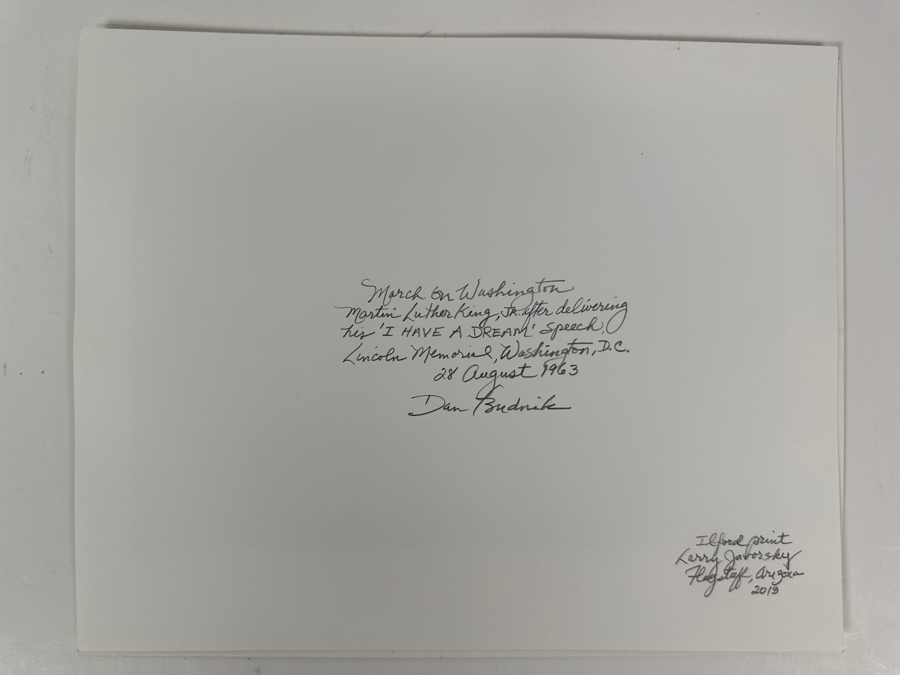 March on Washington
Martin Luther King, Jr. after delivering
his 'I HAVE A DREAM' speech
Lincoln Memorial, Washington, D.C.
28 August 1963
Dan Budnik
Ilford print
Larry Javorsky
Flagstaff, Arizona
2013